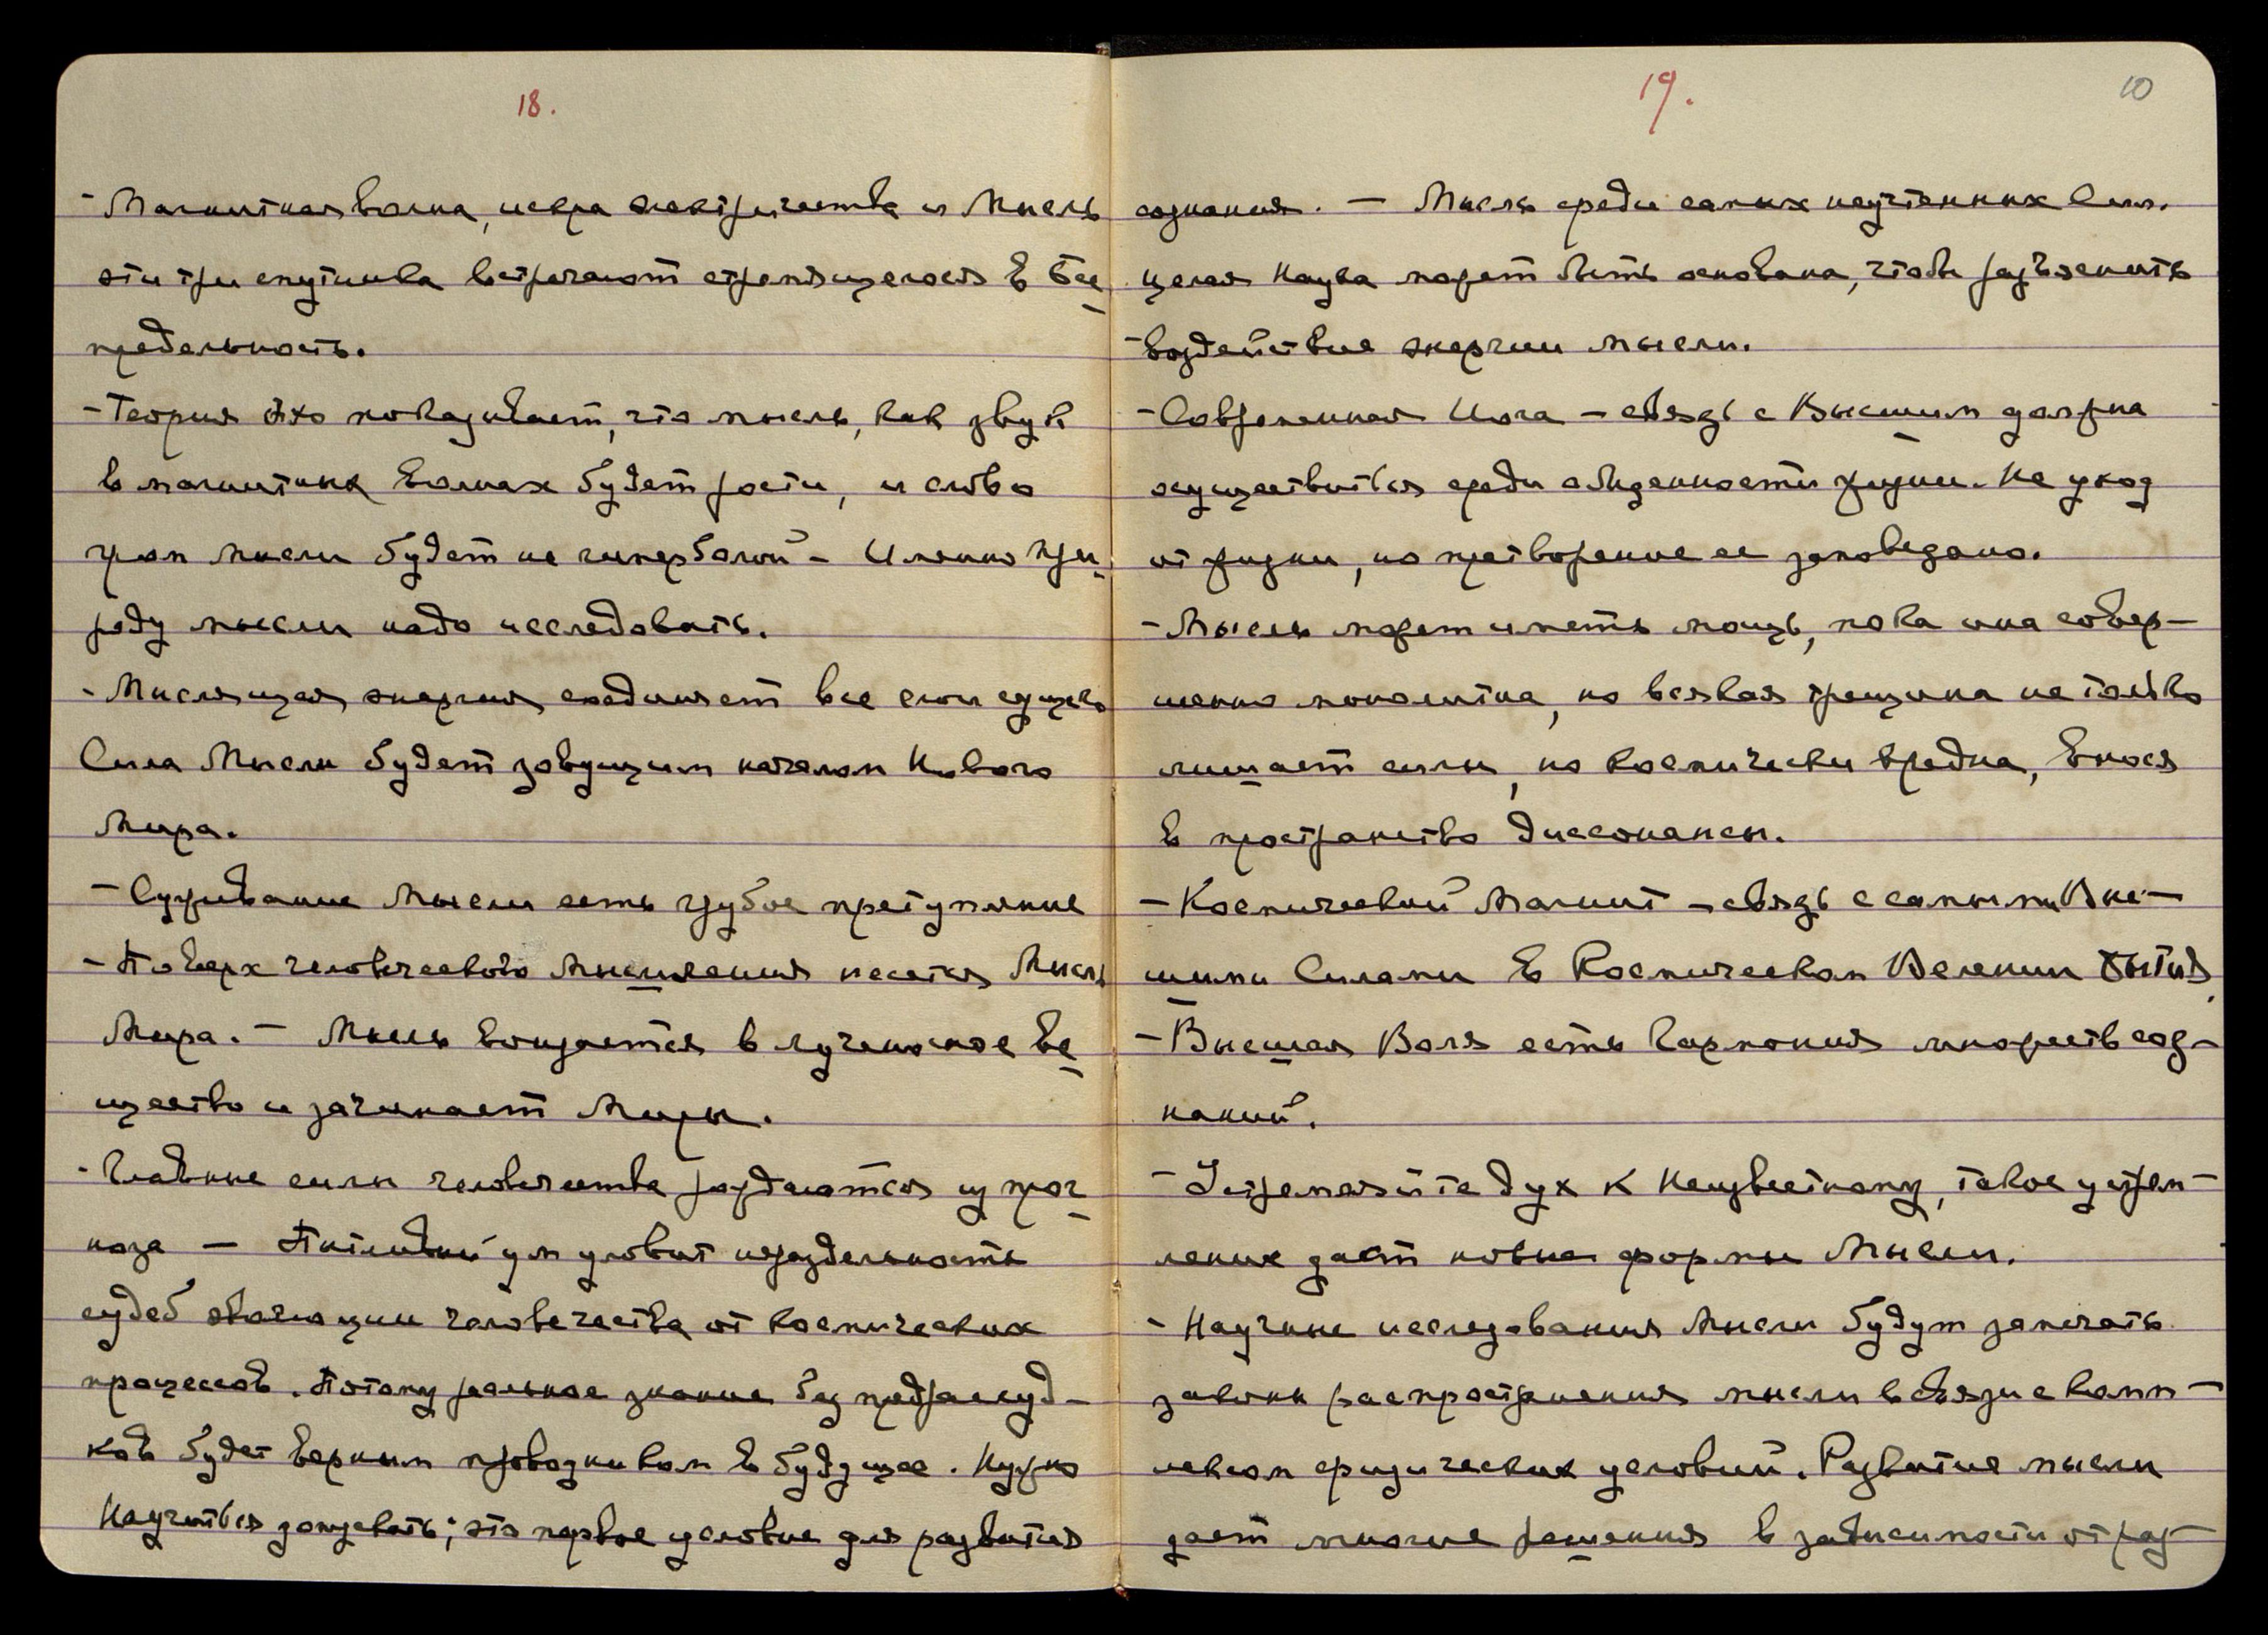 18.
- Магнитная волна, искра электричества и Мысль
эти три спутника встречают стремящегося в Бес
предельность.
- Теория Эхо показывает, что мысль, как звук
в магнитных волнах будет расти, и слово
гром мысли будет не гиперболой - Именно при
роду мысли надо исследовать.
- Мыслящая энергия соединяет все слои сущего
Сила Мысли будет зовущим началом Нового
Мира.
- Суживание Мысли есть грубое преступление
- Поверх человеческого мышления несется Мысль
Мира. - Мысль вонзается в лученосное ве
щество и зачинает Миры.
- Главные силы человечества рождаются из прог
ноза - Пытливый ум уловит нераздельность
судеб эволюции человечества от космических
процессов. Потому реальное знание без предрассуд-
ков будет верным проводником в будущее. Нужно
научиться дощевать; это первое условие для развития
19.
10
сознания. - Мысль среди самых неучтенных Сил.
целая Наука может быть основана, чтобы разъяснить
воздействие энергии мысли.
- Современная Иога - связь с Высшим должна
осуществиться среди обыденности жизни. Не уход
от жизни, но претворение ее заповедано.
- Мысль может иметь мощь, пока она совер-
шенно монолитна, но всякая трещина не только
лишает силы, но космически вредна, внося
в пространство диссонансы.
- Космический Магнит - связь с самыми Выс-
шими Силами в Космическом Велении Бытия
- Высшая Воля есть Гармония множеств соз-
наний.
- Устремляйте дух к Неизвестному, такое устрем-
ление дает новые формы Мысли.
- Научные исследования Мысли будут замечать
законы распространения мысли в связи с комп-
лексом физических условий. Развитие мысли
дает многие решения в зависимости от раз-